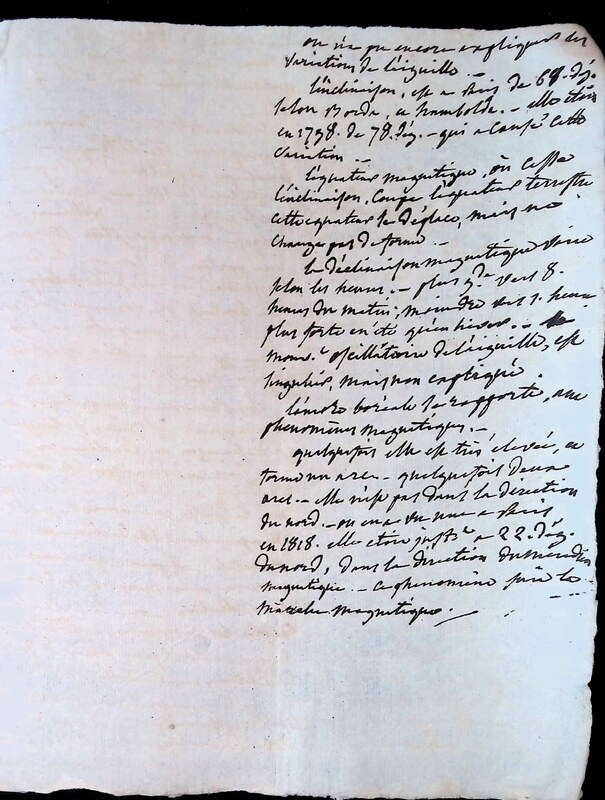 on n'a pu encore expliquer les
variations de l'aiguille. –
l'inclinaison, est a Paris de 68. dég.
selon Borda, et humbolde. – elle étoit
en 1798. de 78. dég. – qui a causé cette
variation –
l'équateur magnétique, où cesse
l'inclinaison, coupe l'équateur terrestre
cette equateur se déplace, mais ne
change pas de forme –
la déclinaison magnétique varie
selon les heures. – plus gde vers 8.
heures du matin, moindre vers 1. heure
plus forte en été qu'en hiver. –
mouvt oscillatoire de l'aiguille, est
singulier, mais non expliqué.
l'aurore boréale se rapporte, aux
phenomènes magnétiques. –
quelquefois elle est très élevée, et
forme un arc – quelquefois deux
arcs. – elle n'est pas dans la direction
du nord. – on en a vu une a Paris
en 1818. elle étoit justt a 22. dég.
du nord, dans la direction du méridien
magnétique. – ce phenomène suit la
marche magnétique.